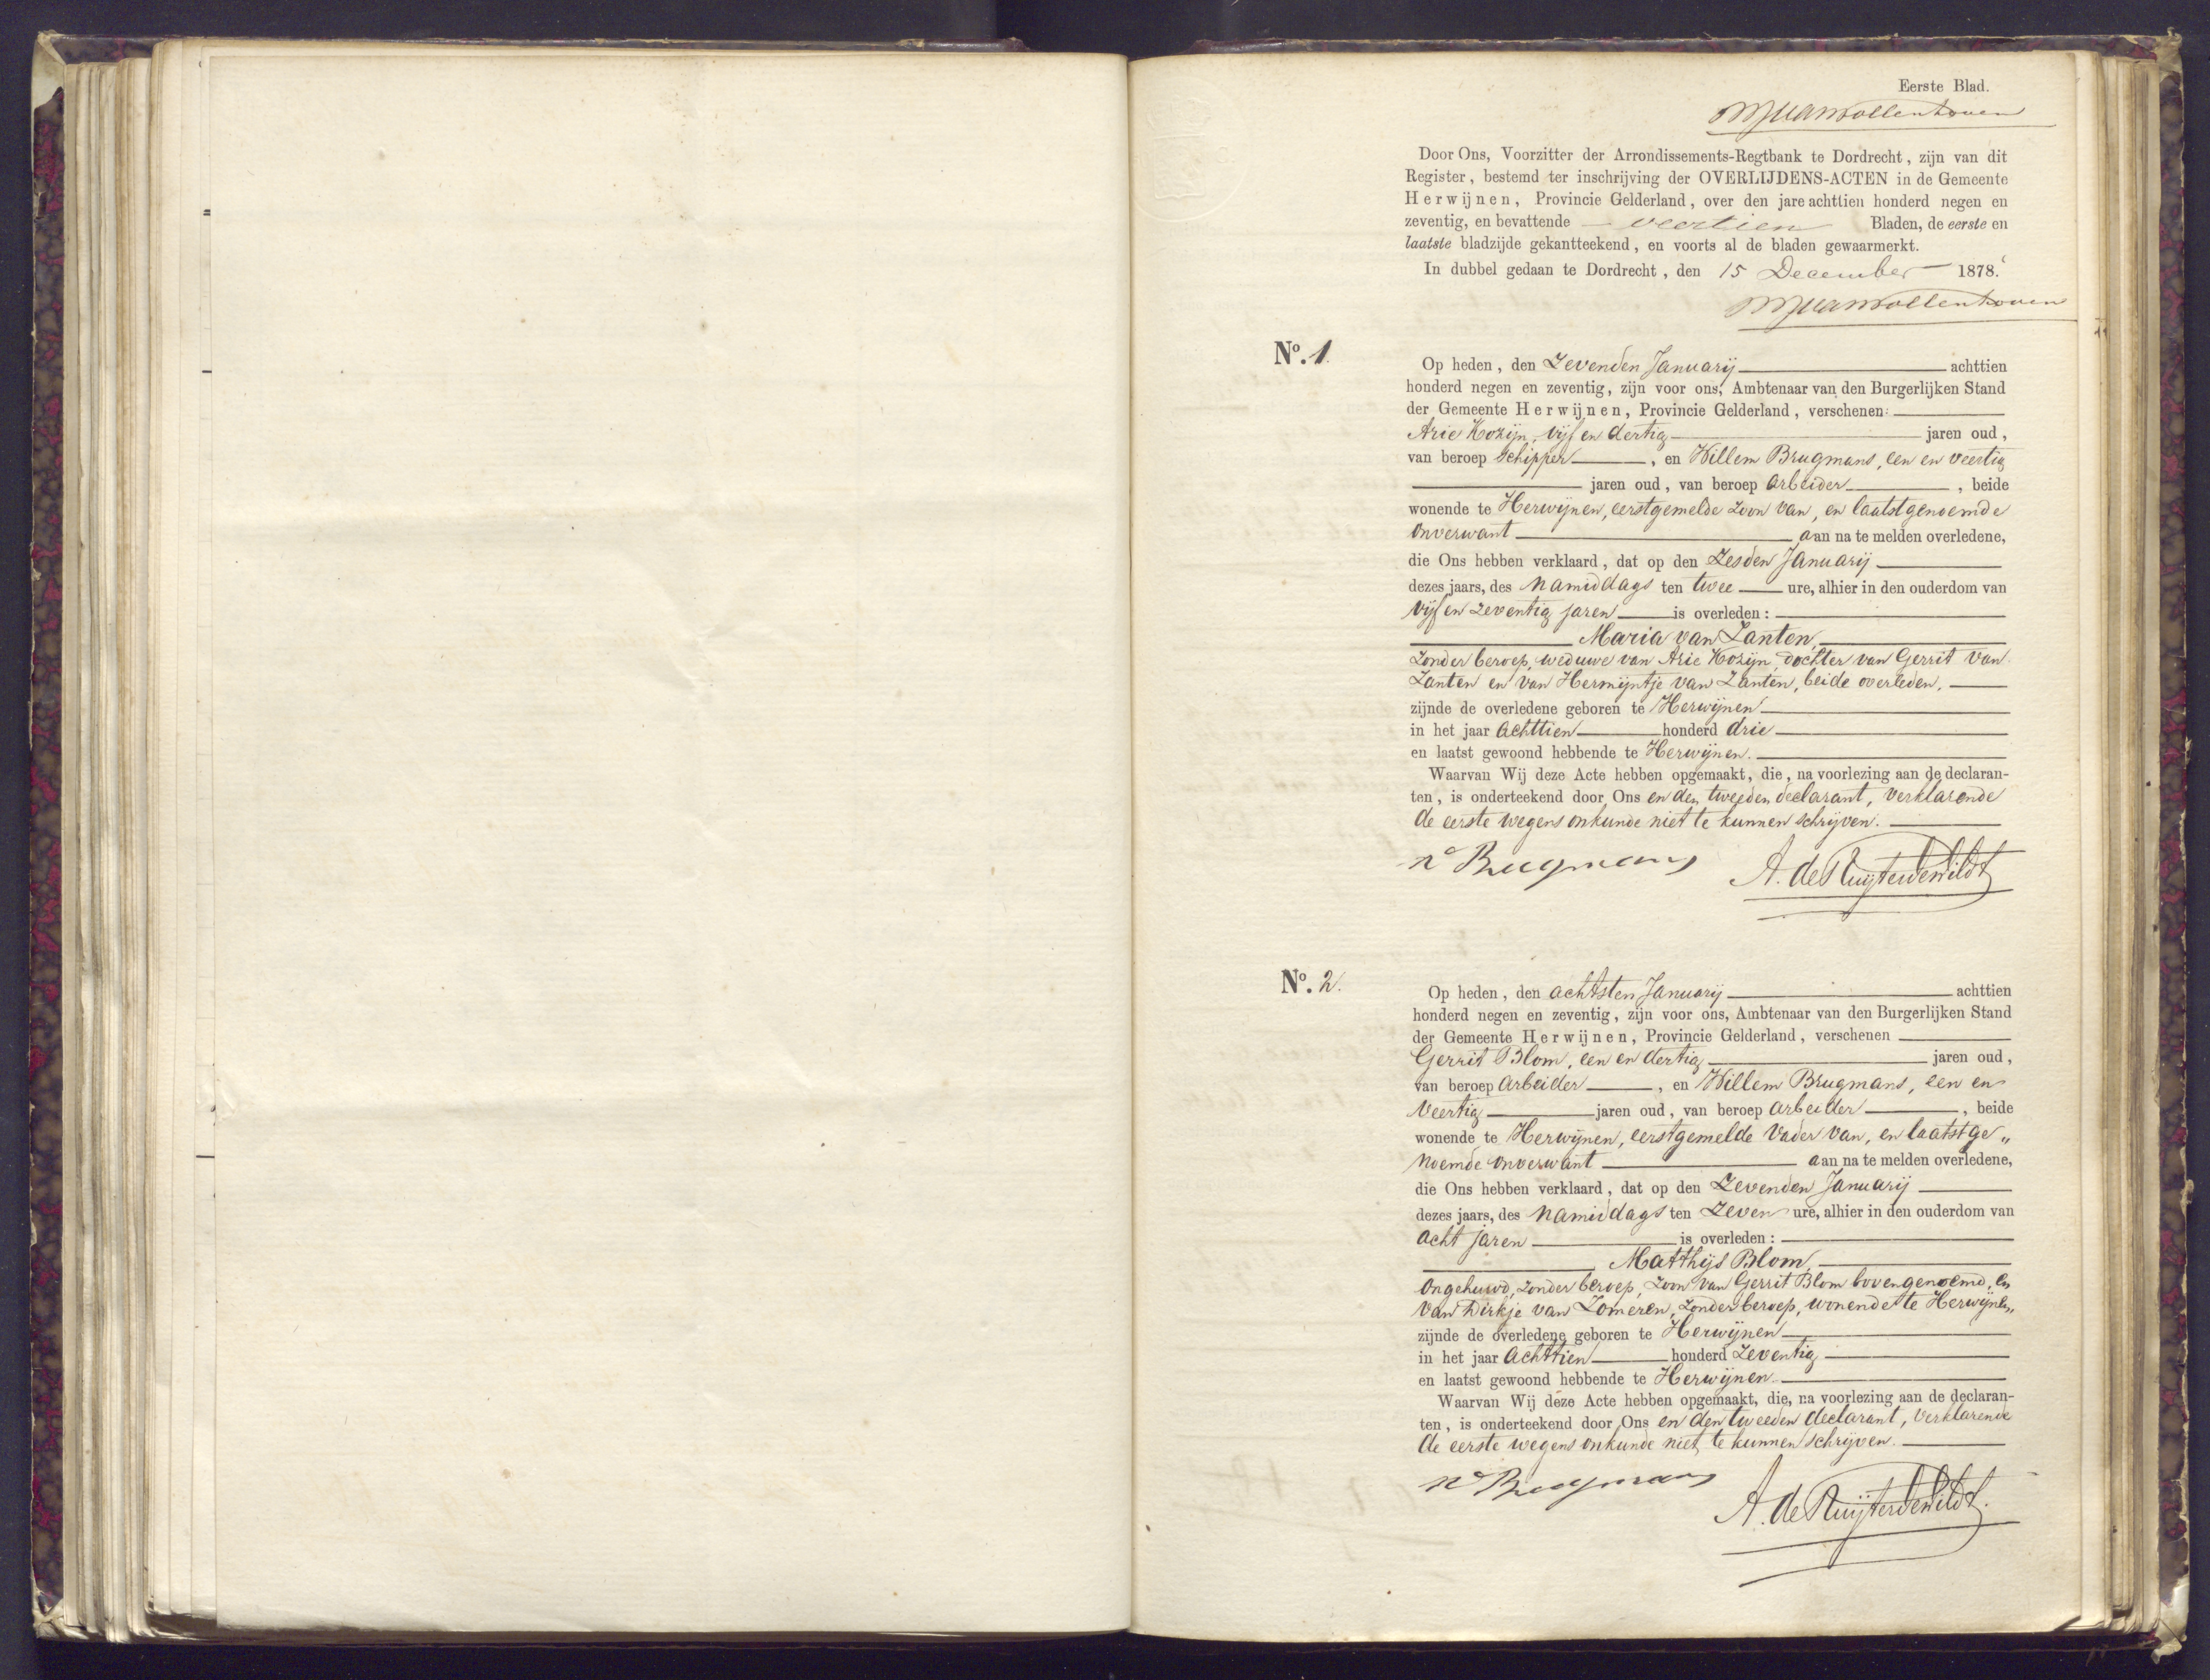 Eerste Blad.
Door Ons, Voorzitter der Arrondissements-Regtbank te Dordrecht, zijn van dit
Register, bestemd ter inschrijving der OVERLIJDENS-ACTEN in de Gemeente
Herwijnen, Provincie Gelderland, over den jare achttien honderd negen en
zeventig, en bevattende veertien Bladen, de eerste en
laatste bladzijde gekantteekend, en voorts al de bladen gewaarmerkt.
In dubbel gedaan te Dordrecht, den 15 December 1878.
No. 1.
Op heden, den Zevenden Januarij achttien
honderd negen en zeventig, zijn voor ons, Ambtenaar van den Burgerlijken Stand
der Gemeente Herwijnen, Provincie Gelderland, verschenen:
Arie Kozijn, vijf en dertig jaren oud,
van beroep Schipper, en Willem Brugmans, een en veertig
jaren oud, van beroep Arbeider, beide
wonende te Herwijnen, eerstgemelde zoon van, en laatstgenoemde
onverwant aan na te melden overledene,
die Ons hebben verklaard, dat op den Zesden Januarij
dezes jaars, des Namiddags ten twee ure, alhier in den ouderdom van
vijf en zeventig jaren is overleden:
Maria van Zanten,
zonder beroep, weduwe van Arie Kozijn, dochter van Gerrit van
Zanten en van Hermijntje van Zanten, beide overleden,
zijnde de overledene geboren te Herwijnen
in het jaar Achttien honderd drie
en laatst gewoond hebbende te Herwijnen.
Waarvan Wij deze Acte hebben opgemaakt, die, na voorlezing aan de declaran-
ten, is onderteekend door Ons en den tweeden declarant, verklarende
de eerste wegens onkunde niet te kunnen schrijven.
Brugmans A. de Ruijter de Wildt
No. 2.
Op heden, den achtsten Januarij achttien
honderd negen en zeventig, zijn voor ons, Ambtenaar van den Burgerlijken Stand
der Gemeente Herwijnen, Provincie Gelderland, verschenen
Gerrit Blom, een en dertig jaren oud,
van beroep Arbeider, en Willem Brugmans, een en
Veertig jaren oud, van beroep Arbeider, beide
wonende te Herwijnen, eerstgemelde Vader van, en laatstge„
noemde onverwant aan na te melden overledene,
die Ons hebben verklaard, dat op den Zevenden Januarij
dezes jaars, des Namiddags ten Zeven ure, alhier in den ouderdom van
acht jaren is overleden:
Matthijs Blom,
Ongehuwd, zonder beroep, zoon van Gerrit Blom bovengenoemd, en
van Dirkje van Zomeren, zonder beroep, wonende te Herwijnen,
zijnde de overledene geboren te Herwijnen
in het jaar Achttien honderd Zeventig
en laatst gewoond hebbende te Herwijnen
Waarvan Wij deze Acte hebben opgemaakt, die, na voorlezing aan de declaran-
ten, is onderteekend door Ons en den tweeden declarant, verklarende
de eerste wegens onkunde niet te kunnen schrijven.
Brugmans
A. de Ruijter de Wildt.